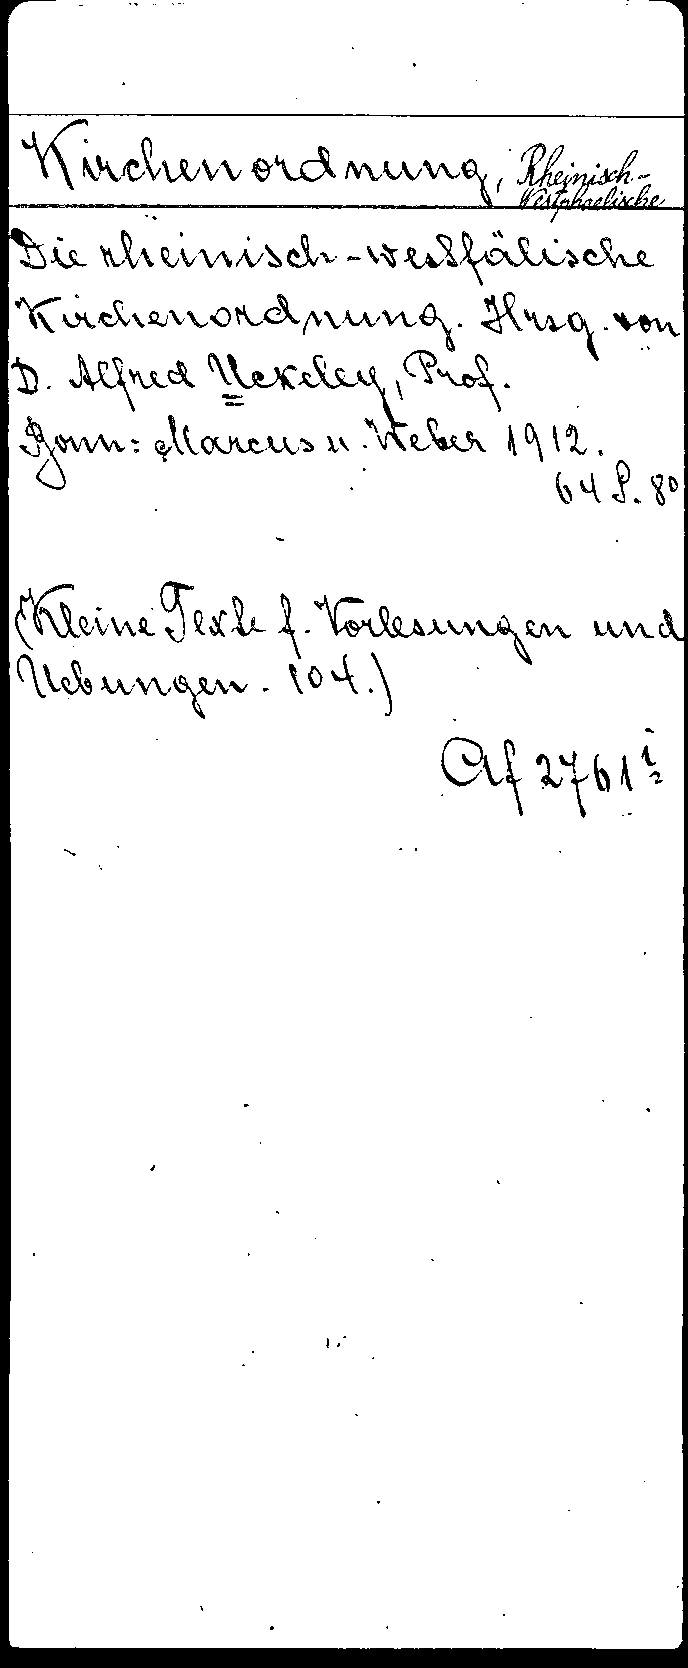 Kirchenordnung, Rheinisch-
Westphaelische
Die rheinisch-westfälische
Kirchenordnung. Hrsg. von
D. Alfred Uckeley, Prof.
Bonn: Marcus u. Weber 1912.
64 S. 8°
(Kleine Texte f. Vorlesungen und
Uebungen. 104.)
Af 2761 i/2